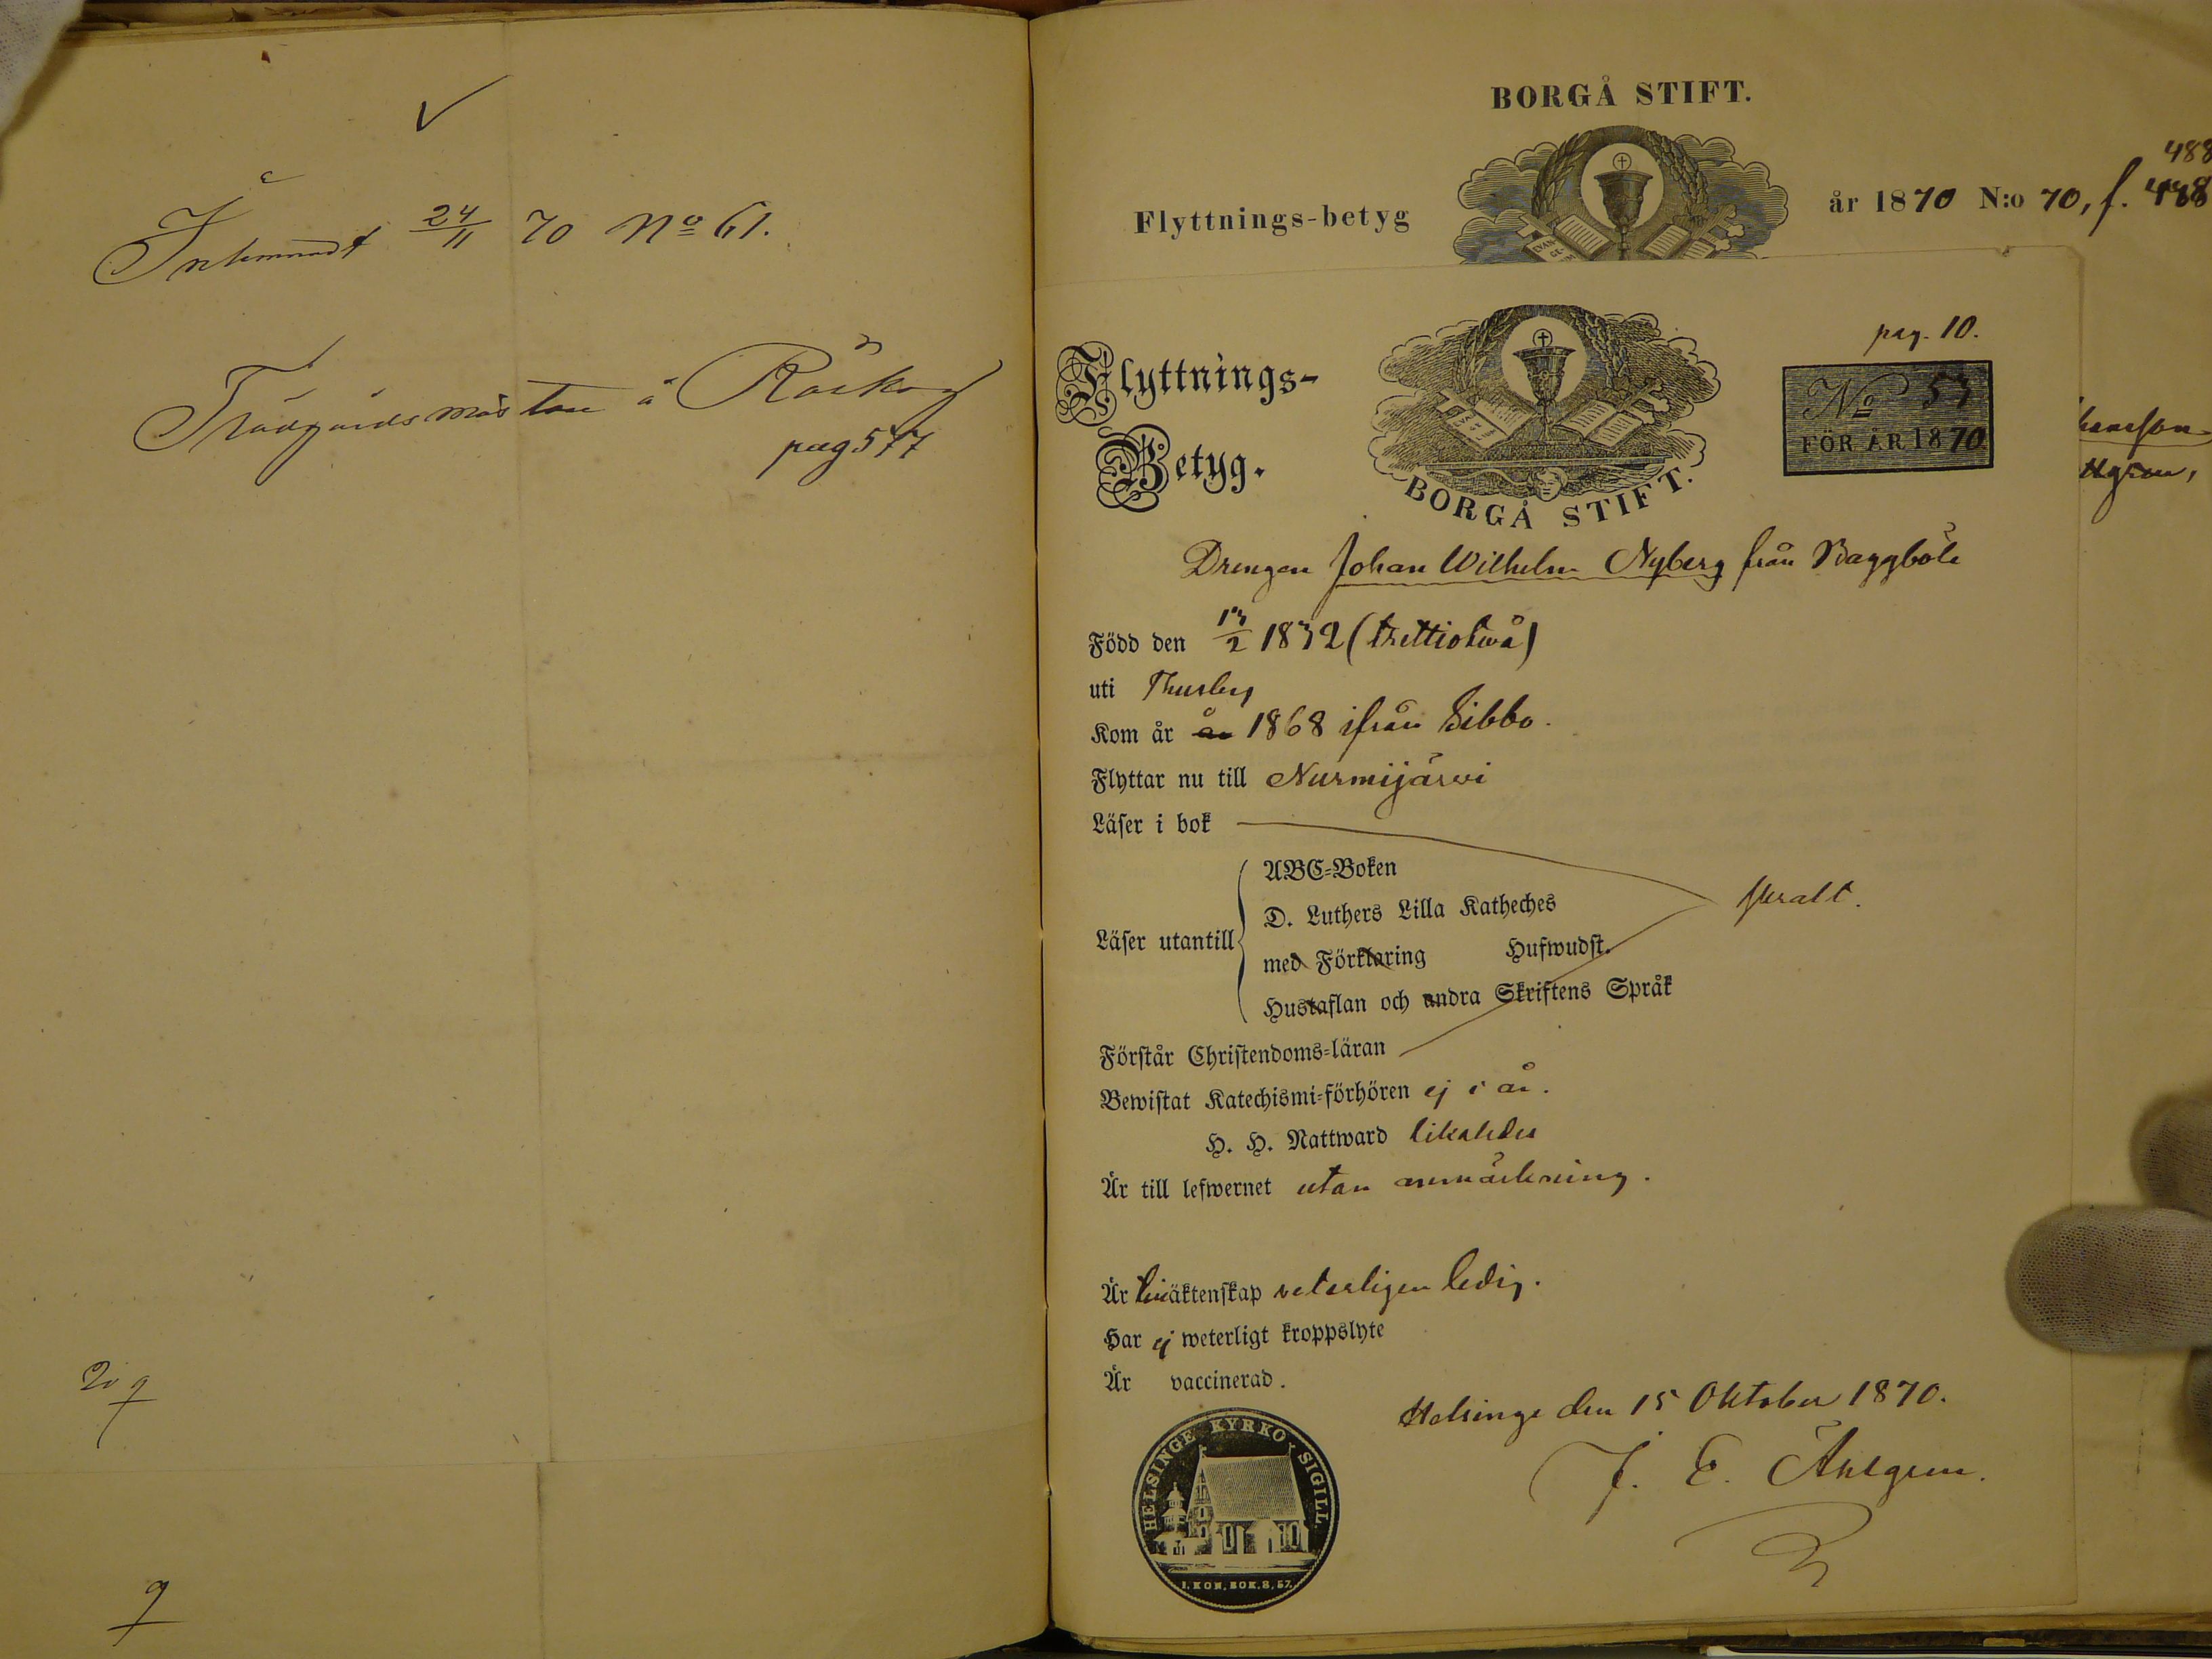 Inlemnadt 24/11 70 No 61.
Trädgårdsmästare å Röskog
pag 577
209
9
BORGÅ STIFT.
488
Flyttnings-betyg
år 1870 N:o 70, f. 448
EVAN
GE
Flyttnings-
Betyg.
BORGÅ STIFT.
pag. 10.
No 53
FÖR ÅR 1870
Drengen Johan Wilhelm Nyberg från Baggböle
Född den 13/2 1832 (trettiotwå)
uti Thusby
Kom år år 1868 ifrån Sibbo.
Flyttar nu till Nurmijärwi
Läser i bok
ABC-Boken
D. Luthers Lilla Katheches
svalt.
Läser utantill
med Förklaring Hufwudst.
Hustaflan och andra Skriftens Språk
Förstår Christendoms-läran
Bewistat Katechismi-förhören ej i år.
H. H. Nattward likaledes
Är till lefwernet utan anmärkning.
Är till äktenskap veterligen ledig.
Har ej weterligt kroppslyte
Är vaccinerad.
Helsinge den 15 Oktober 1870.
J. E. Åhlgren.
HELSINGE KYRKO SIGILL.
1. KON. BOK. 8, 57.